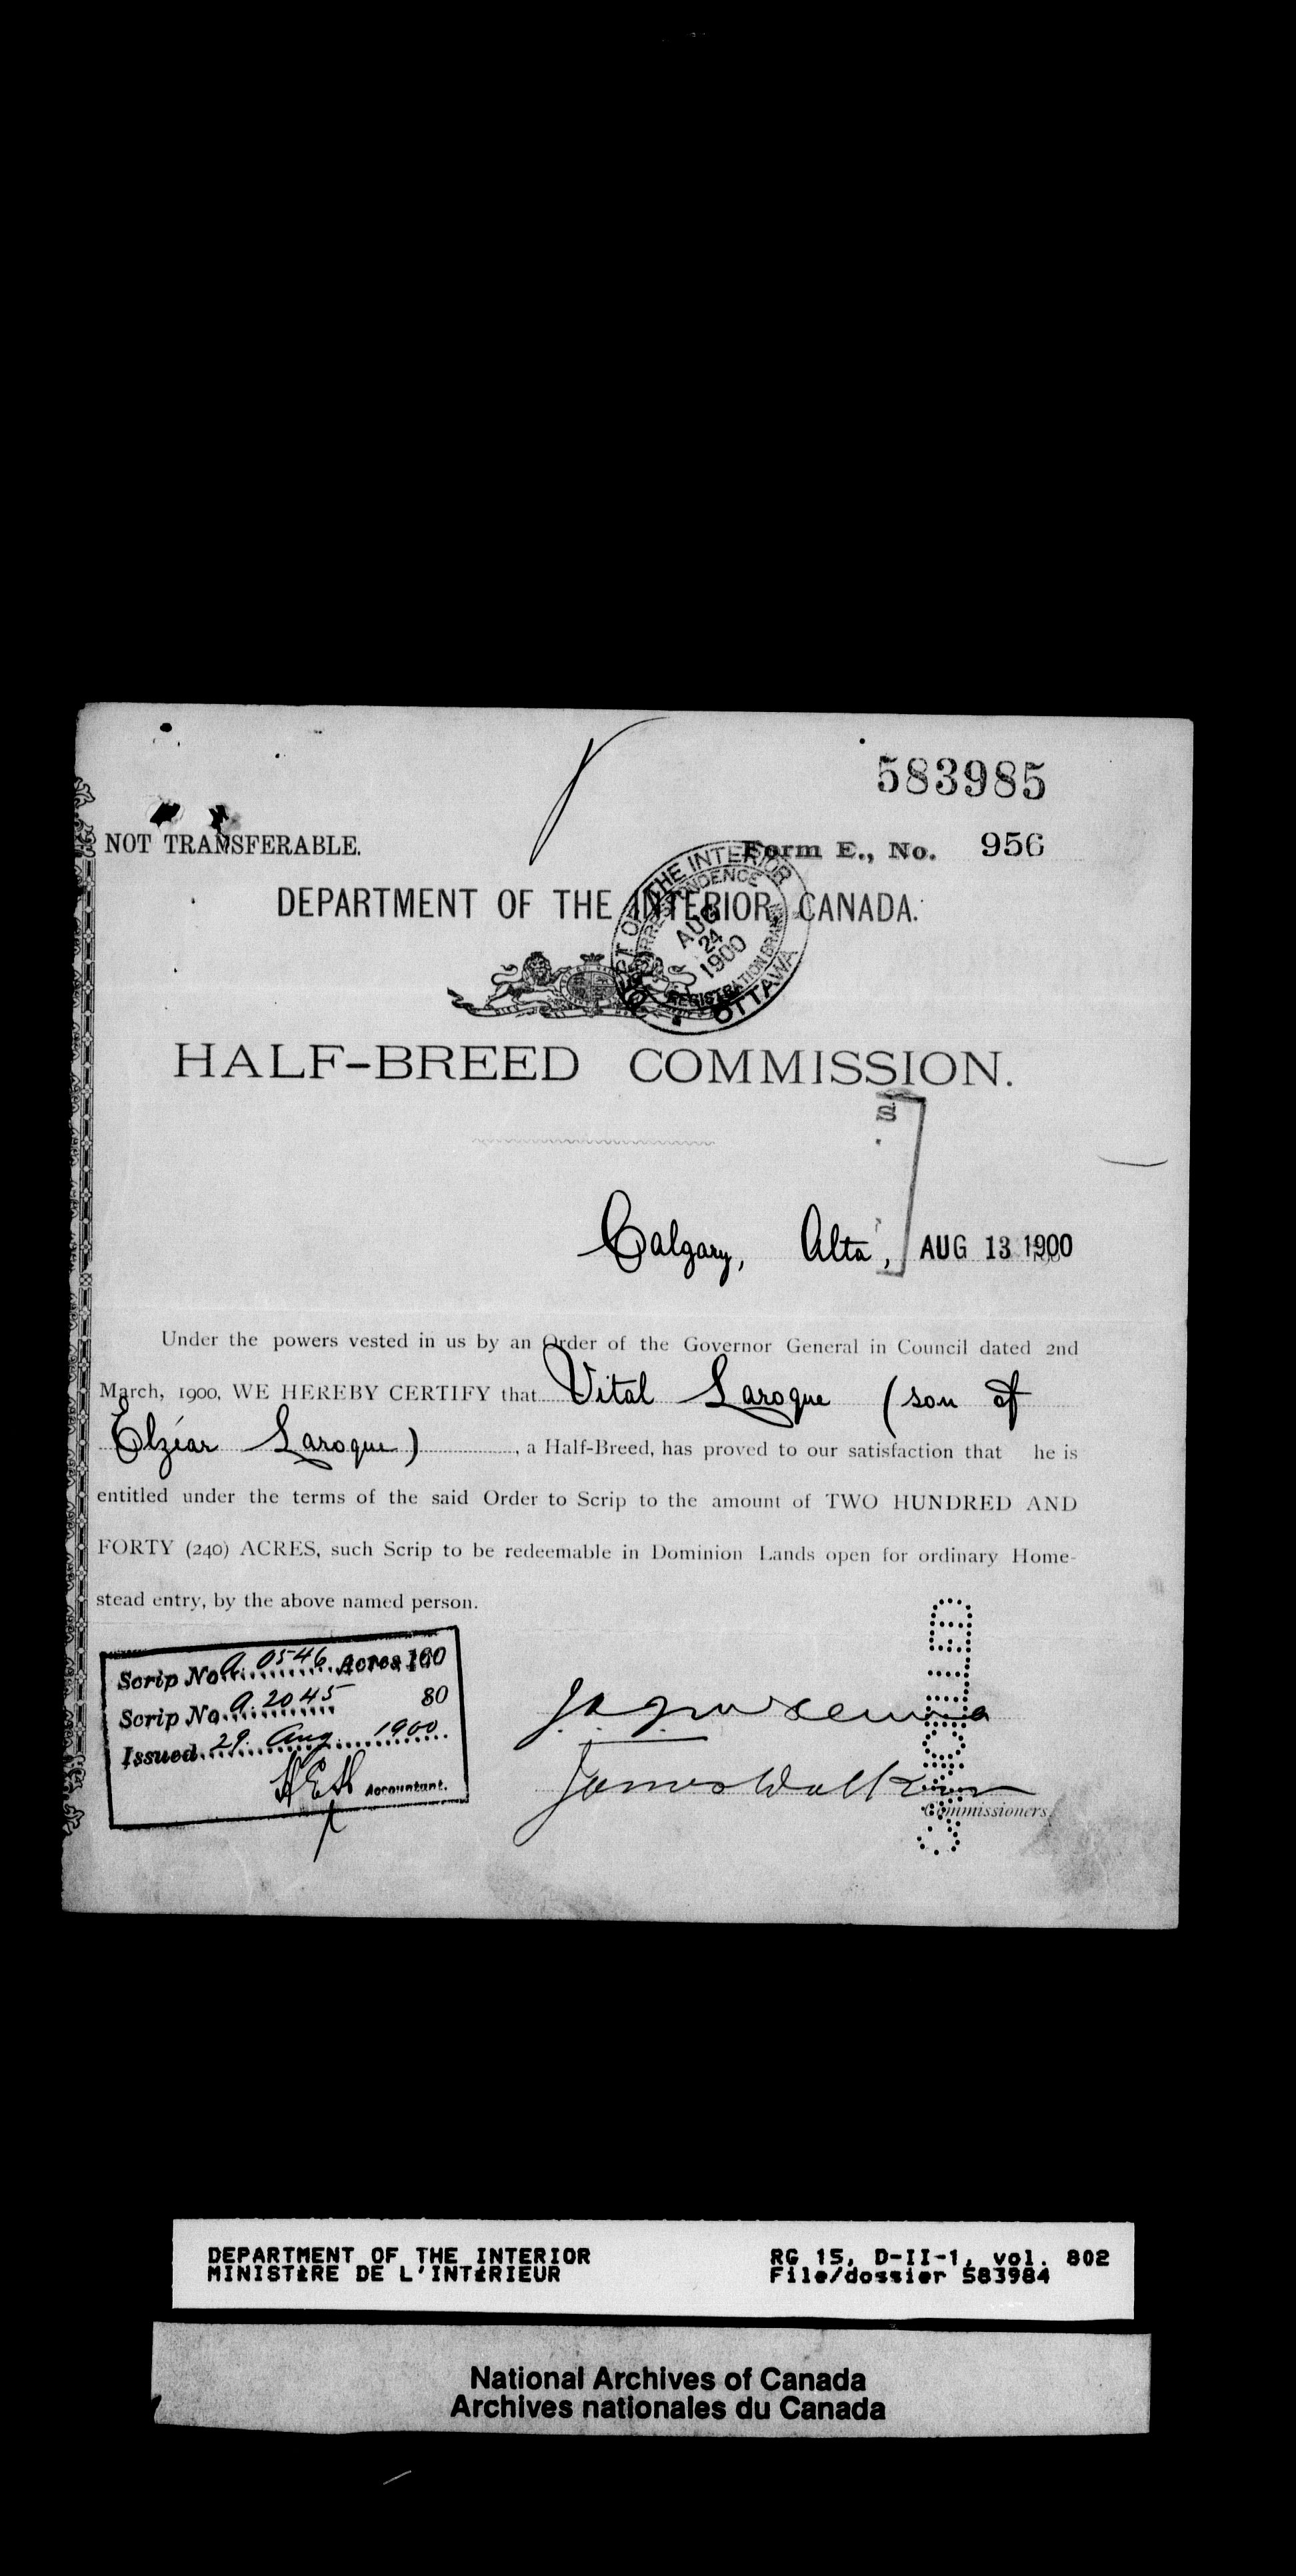 583985
NOT TRANSFERABLE.
Form E., No. 956
DEPARTMENT OF THE INTERIOR, CANADA.
DEPT OF THE INTERIOR
CORRESPONDENCE
AUG
24
1900
REGISTRATION BRANCH
OTTAWA
HALF-BREED COMMISSION.
S
Calgary, Alta, AUG 13 1900
Under the powers vested in us by an Order of the Governor General in Council dated 2nd
March, 1900, WE HEREBY CERTIFY that Vital Laroque (son of
Elzéar Laroque), a Half-Breed, has proved to our satisfaction that he is
entitled under the terms of the said Order to Scrip to the amount of TWO HUNDRED AND
FORTY (240) ACRES, such Scrip to be redeemable in Dominion Lands open for ordinary Home-
stead entry, by the above named person.
Scrip No. A. 0546 Acres 160
Scrip No. A. 2045 80
Issued 29. Aug. 1900.
Accountant.
James Walker
Commissioners.
DEPARTMENT OF THE INTERIOR
MINISTÈRE DE L'INTÉRIEUR
RG 15, D-II-1, vol. 802
File/dossier 583984
National Archives of Canada
Archives nationales du Canada